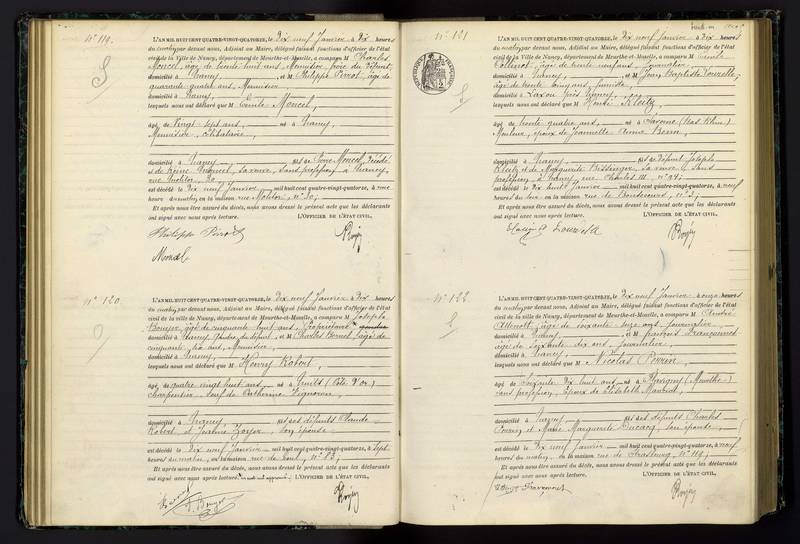 N° 119.
L'AN MIL HUIT CENT QUATRE-VINGT-QUATORZE, le Dix neuf Janvier à Dix heures
du matin par devant nous, Adjoint au Maire, délégué faisant fonctions d'officier de l'état
civil de la Ville de Nancy, département de Meurthe-et-Moselle, a comparu M Charles
Moncel, âgé de trente huit ans, Menuisier, frère du défunt,
domicilié à Nancy, et M Philippe Pierrot, âgé de
quarante quatre ans, Menuisier,
domicilié à Nancy,
lesquels nous ont déclaré que M Emile Moncel,
âgé de Vingt sept ans, né à Nancy,
Menuisier, Célibataire,
domicilié à Nancy fils de Pierre Moncel, Décédé
et de Reine sa veuve, sans profession à Nancy,
rue Molitor, 30,
est décédé le Dix neuf Janvier mil huit cent quatre-vingt-quatorze, à une
heure du matin, en la maison rue Molitor, n° 30;
Et après nous être assuré du décès, nous avons dressé le présent acte que les déclarants
ont signé avec nous après lecture. L'OFFICIER DE L'ÉTAT CIVIL,
Philippe Pierrot
Moncel
N° 120.
L'AN MIL HUIT CENT QUATRE-VINGT-QUATORZE, le Dix neuf Janvier à Dix heures
du matin par devant nous, Adjoint au Maire, délégué faisant fonctions d'officier de l'état
civil de la ville de Nancy, département de Meurthe-et-Moselle, a comparu M Joseph
âgé de cinquante huit ans, Propriétaire
domicilié à Nancy, Gendre du défunt, et M Charles âgé de
cinquante ans, Menuisier,
domicilié à Nancy,
lesquels nous ont déclaré que M Henry Robert,
âgé de quatre vingt huit ans, né à (Côte d'Or)
charpentier, veuf de Catherine Vigneron,
domicilié à Nancy, fils des défunts Claude
Robert et Jeanne son épouse,
est décédé le Dix neuf Janvier mil huit cent quatre-vingt-quatorze, à sept
heures du matin, en la maison rue de Toul, n° 83;
Et après nous être assuré du décès, nous avons dressé le présent acte que les déclarants
ont signé avec nous après lecture. L'OFFICIER DE L'ÉTAT CIVIL,
N° 121
L'AN MIL HUIT CENT QUATRE-VINGT-QUATORZE, le Dix neuf Janvier à Dix heures
du matin par devant nous, Adjoint au Maire, délégué faisant fonctions d'officier de l'état
civil de la Ville de Nancy, département de Meurthe-et-Moselle, a comparu M
âgé de trente neuf ans, Journalier,
domicilié à Nancy, et M Jean Baptiste
âgé de trente cinq ans,
domicilié à Laxou près Nancy,
lesquels nous ont déclaré que M Henri Kloetz,
âgé de trente quatre ans, né à Saverne (Bas Rhin)
Mouleur, époux de Jeannette Anna
domicilié à Nancy fils de défunt Joseph
Kloetz et de Marguerite sa veuve, sans
profession à Nancy, rue Charles III, n° 94;
est décédé le Dix huit Janvier mil huit cent quatre-vingt-quatorze, à neuf
heures du soir en la maison rue de Bonsecours, n° 3;
Et après nous être assuré du décès, nous avons dressé le présent acte que les déclarants
ont signé avec nous après lecture. L'OFFICIER DE L'ÉTAT CIVIL,
N° 122
L'AN MIL HUIT CENT QUATRE-VINGT-QUATORZE, le Dix neuf Janvier à onze heures
du matin par devant nous, Adjoint au Maire, délégué faisant fonctions d'officier de l'état
civil de la ville de Nancy, département de Meurthe-et-Moselle, a comparu M André
âgé de soixante onze ans, Journalier,
domicilié à Nancy, et M François
âgé de Soixante dix ans, Journalier,
domicilié à Nancy,
lesquels nous ont déclaré que M Nicolas Perrin,
âgé de Soixante Dix huit ans, né à Flavigny (Meurthe)
sans profession, époux de Elisabeth
domicilié à Nancy, fils des défunts Charles
Perrin et Marie Marguerite son épouse,
est décédé le Dix neuf Janvier mil huit cent quatre-vingt-quatorze, à neuf
heures du matin, en la maison rue de Strasbourg, n° 119;
Et après nous être assuré du décès, nous avons dressé le présent acte que les déclarants
ont signé avec nous après lecture. L'OFFICIER DE L'ÉTAT CIVIL,